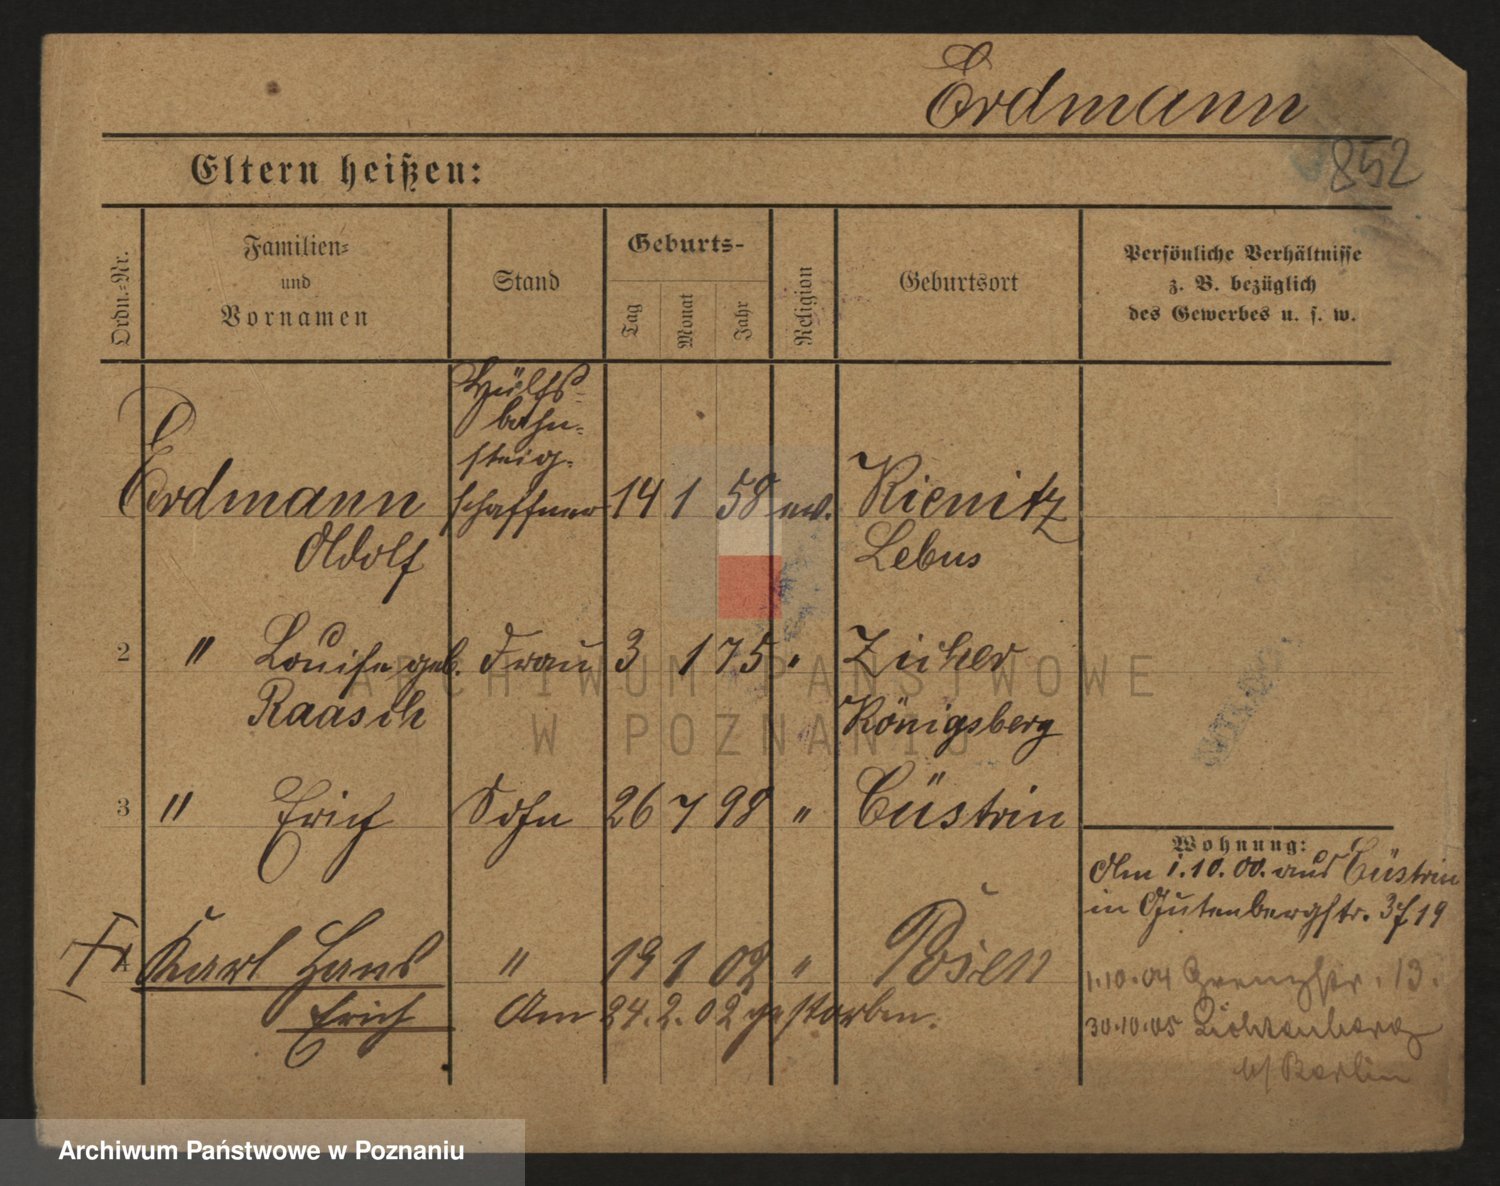 Erdmann
852
Eltern heißen:
Ordn.-Nr.
Familien-
und
Vornamen
Stand
Geburts-
Tag
Monat
Jahr
Religion
Geburtsort
Persönliche Verhältnisse
z. B. bezüglich
des Gewerbes u. s. w.
Hülfs-
bahn-
steig-
Erdmann schaffner 14 1 58 ev. Kienitz
Adolf Lebus
2 " Louise geb. Frau 3 1 75 " Zicher
Raasch Königsberg
3 " Erich Sohn 26 7 98 " Cüstrin
Wohnung:
Am 1.10.00. aus Cüstrin
in Gutenbergstr. 19
4 Karl Hans " 19 1 02 " Posen
Erich Am 24.2.02 gestorben.
1.10.04 Grenzstr. 13.
30.10.05 Lichtenberg
b/Berlin
ARCHIWUM PAŃSTWOWE
W POZNANIU
Archiwum Państwowe w Poznaniu